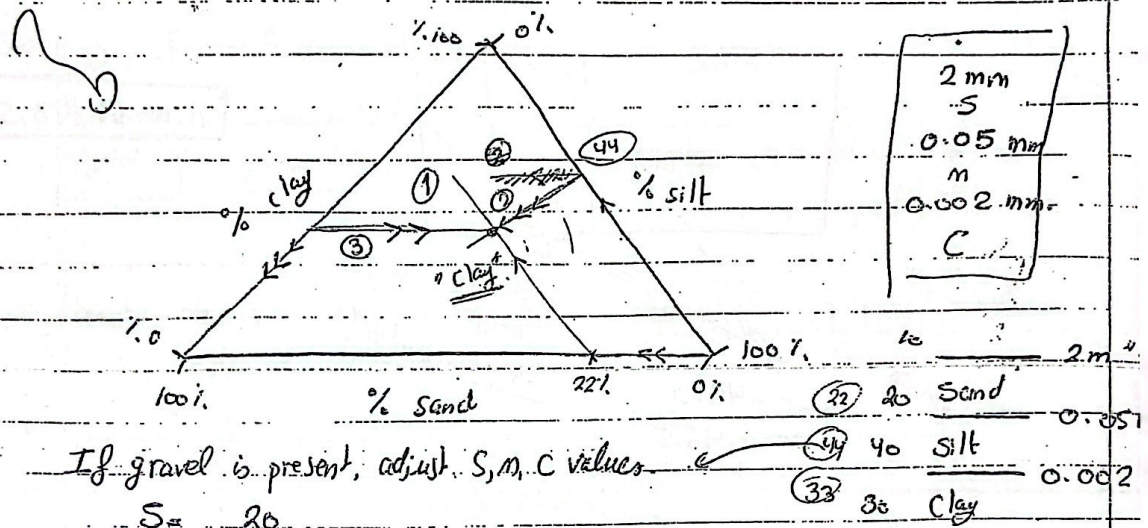 %100 0%
44
% silt
% clay
1
2
3
"Clay"
%0
100%
22%
0%
100%
% Sand
2 mm
S
0.05 mm
m
0.002 mm
C
10 2m
22 20 Sand
0.051
44 40 Silt
0.002
33 30 Clay
If gravel is present, adjust S, m, C values.
S= 20